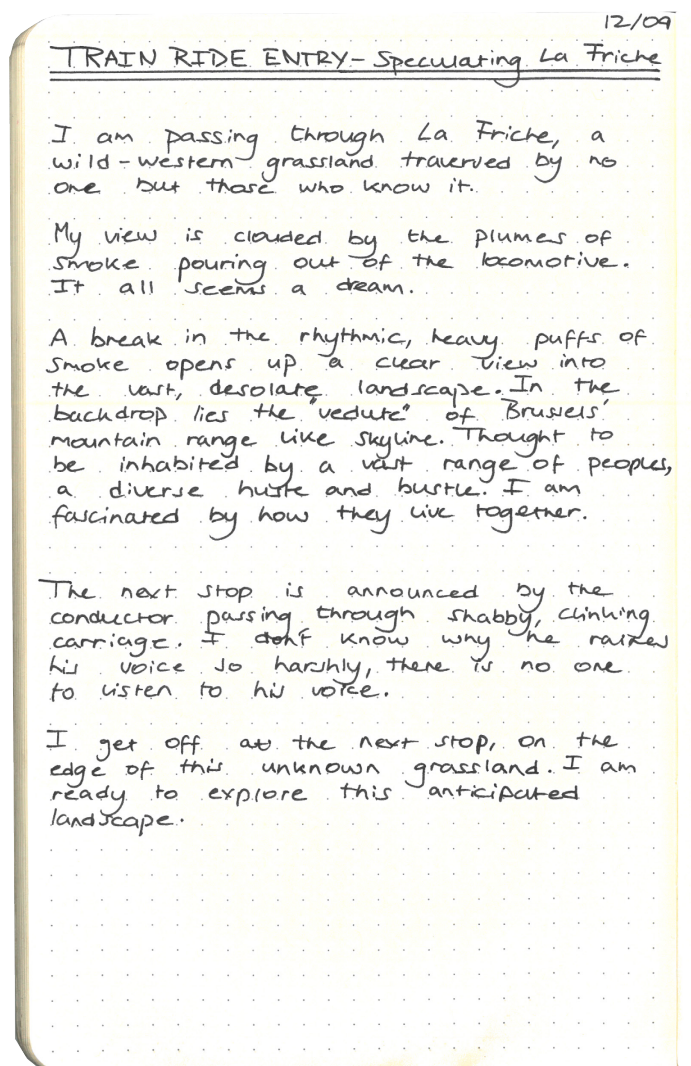 12/09
TRAIN RIDE ENTRY - Speculating La Friche
I am passing through La Friche, a
wild-western grassland traverved by no
one but those who know it.
My view is clouded by the plumes of
smoke pouring out of the locomotive.
It all seems a dream.
A break in the rhythmic, heavy puffs of
smoke opens up a clear view into
the vast, desolate landscape. In the
backdrop lies the "vedute" of Brussels'
mountain range like skyline. Thought to
be inhabited by a vast range of peoples,
a diverse hustle and bustle. I am
fascinated by how they live together.
The next stop is announced by the
conductor passing through shabby, clinking
carriage. I don't know why he raises
his voice so harshly, there is no one
to listen to his voice.
I get off at the next stop, on the
edge of this unknown grassland. I am
ready to explore this anticipated
landscape.